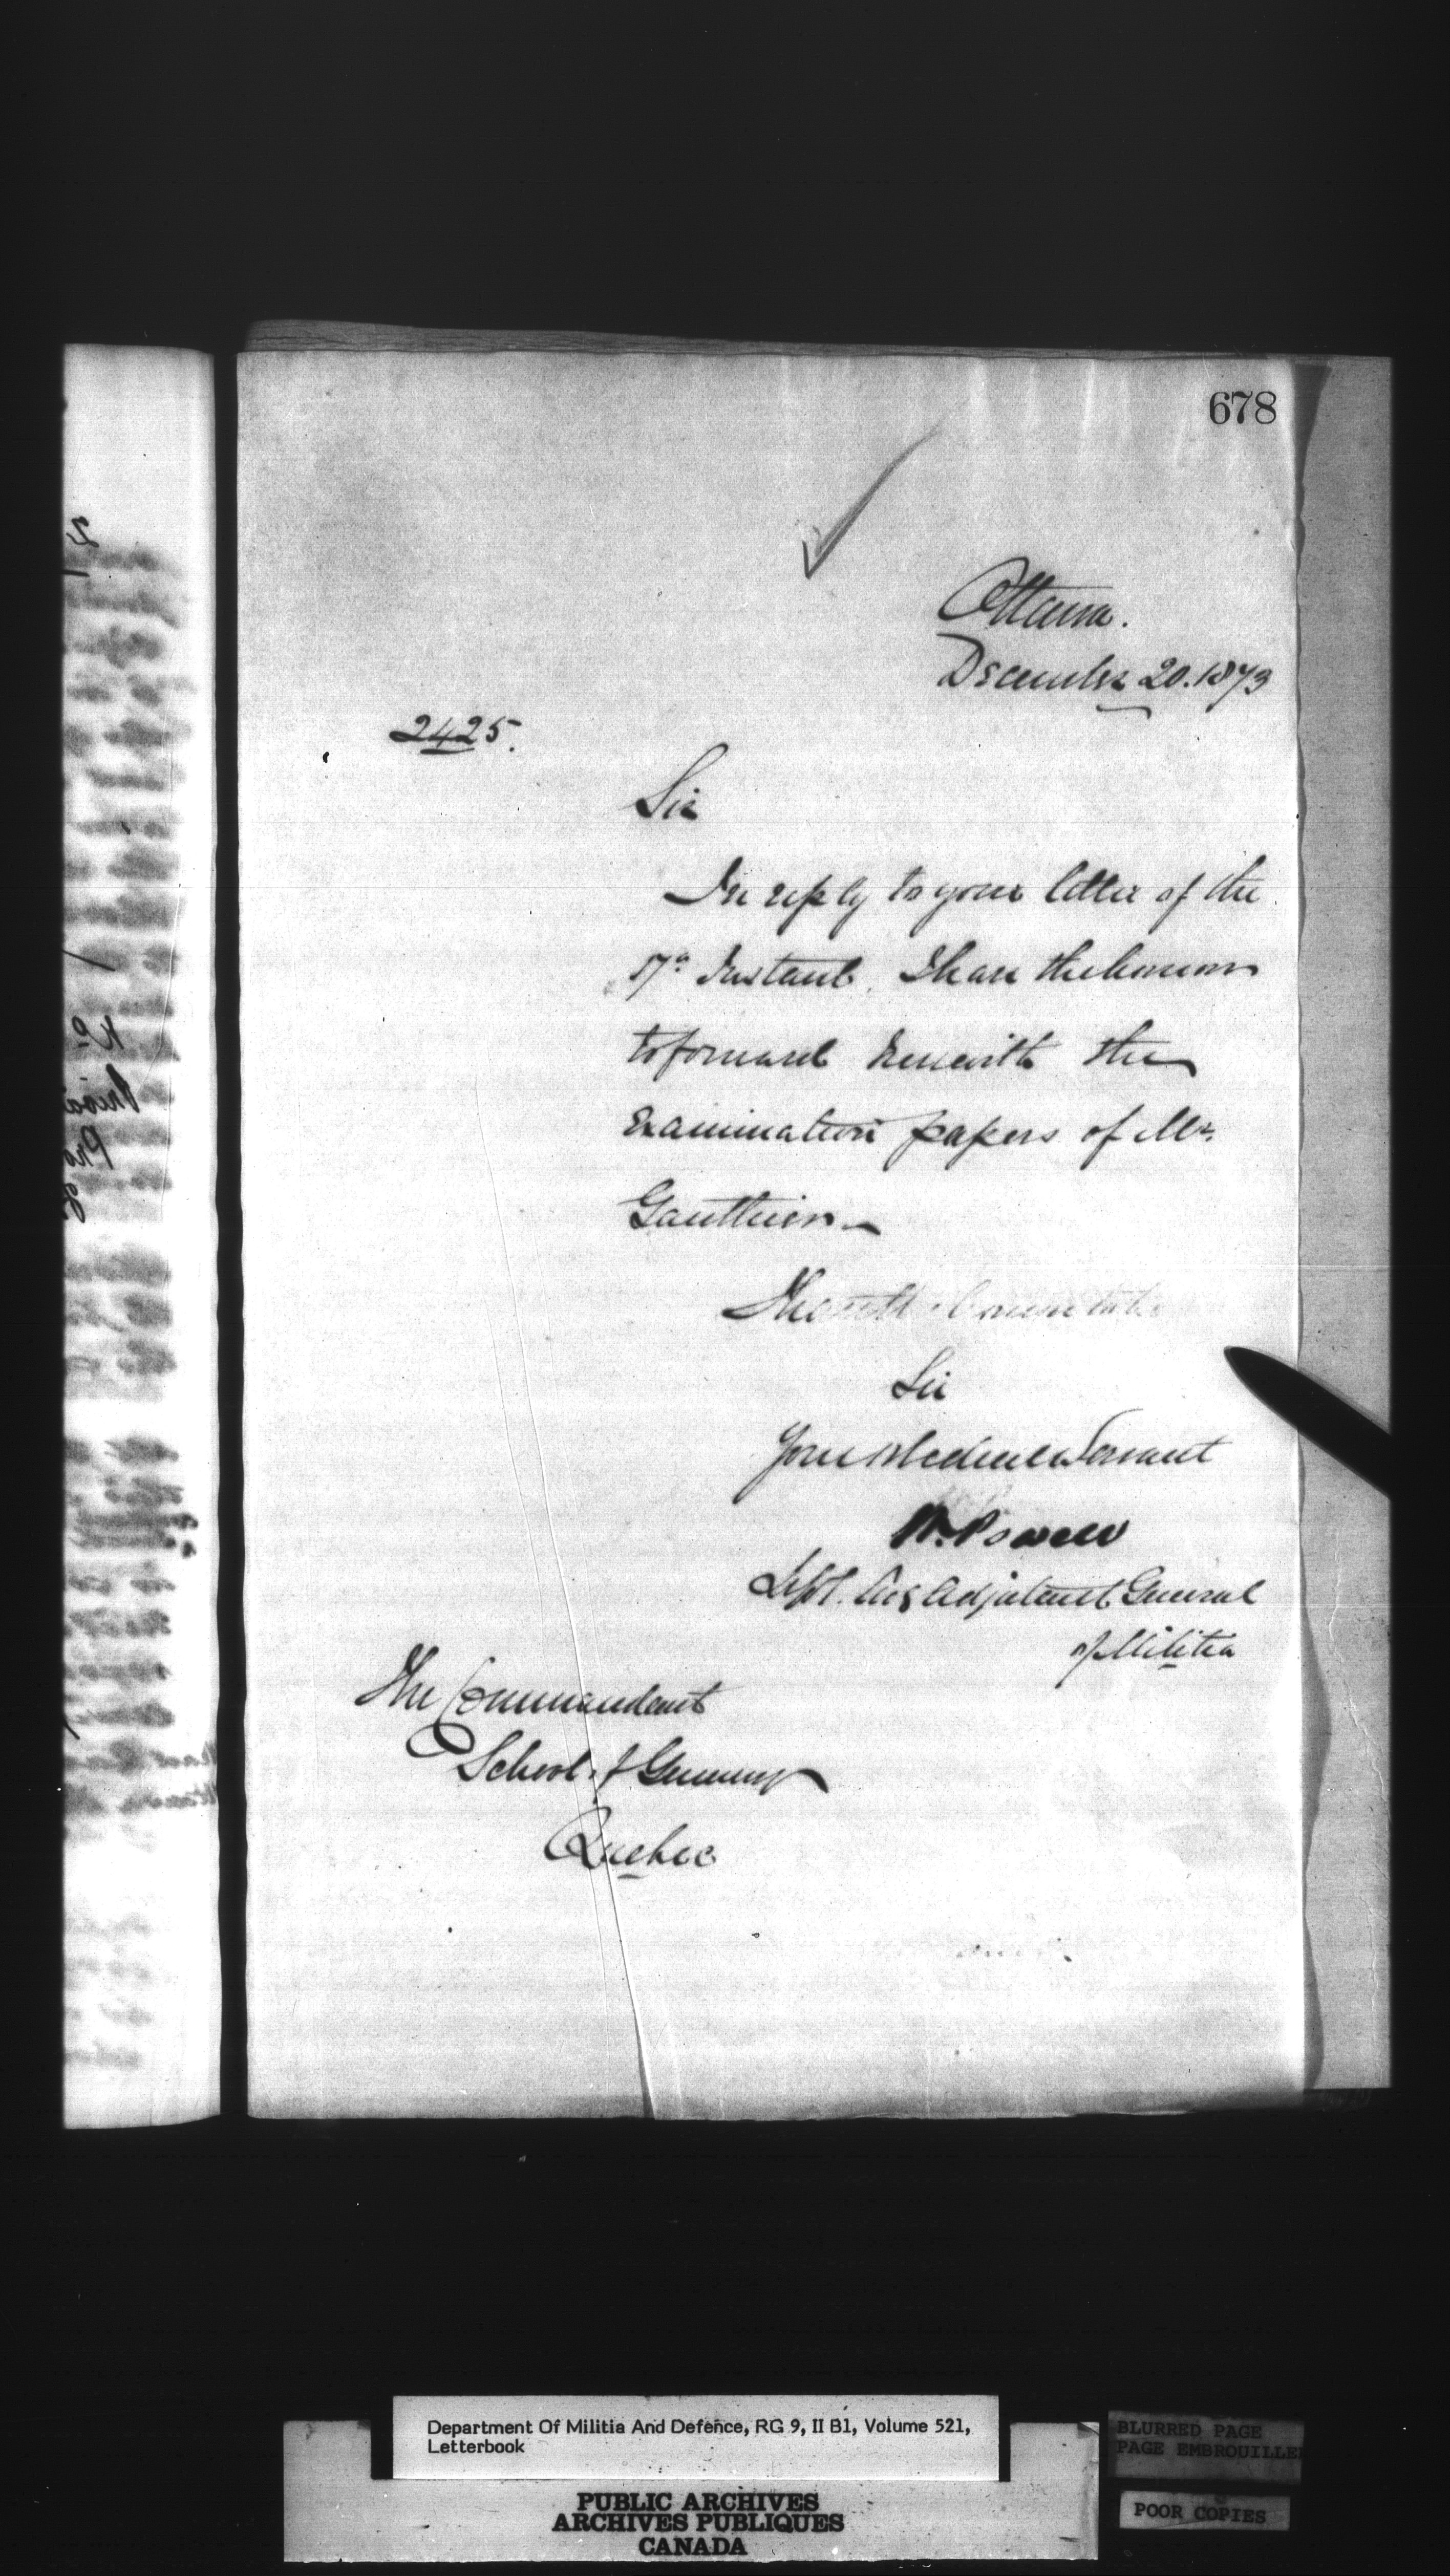 678
Ottawa.
December 20. 1873
2425.
Sir
In reply to your letter of the
17th Instant, I have the honour
to forward herewith the
Examination papers of Mr.
Gauthier
I have the honour to be
Sir
Your obedient Servant
W. Powell
Dept. Adjutant General
of Militia
The Commandant
School of Gunnery
Quebec
Department Of Militia And Defence, RG 9, II B1, Volume 521,
Letterbook
PUBLIC ARCHIVES
ARCHIVES PUBLIQUES
CANADA
BLURRED PAGE
PAGE EMBROUILLE
POOR COPIES